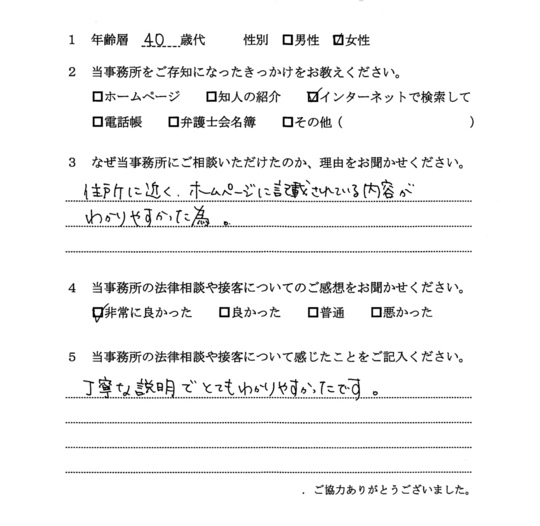 1 年齢層 40 歳代 性別 □男性 ☑女性
2 当事務所をご存知になったきっかけをお教えください。
□ホームページ □知人の紹介 ☑インターネットで検索して
□電話帳 □弁護士会名簿 □その他（ ）
3 なぜ当事務所にご相談いただけたのか、理由をお聞かせください。
住所に近く、ホームページに記載されている内容が
わかりやすかった為。
4 当事務所の法律相談や接客についてのご感想をお聞かせください。
☑非常に良かった □良かった □普通 □悪かった
5 当事務所の法律相談や接客について感じたことをご記入ください。
丁寧な説明でとてもわかりやすかったです。
．ご協力ありがとうございました。